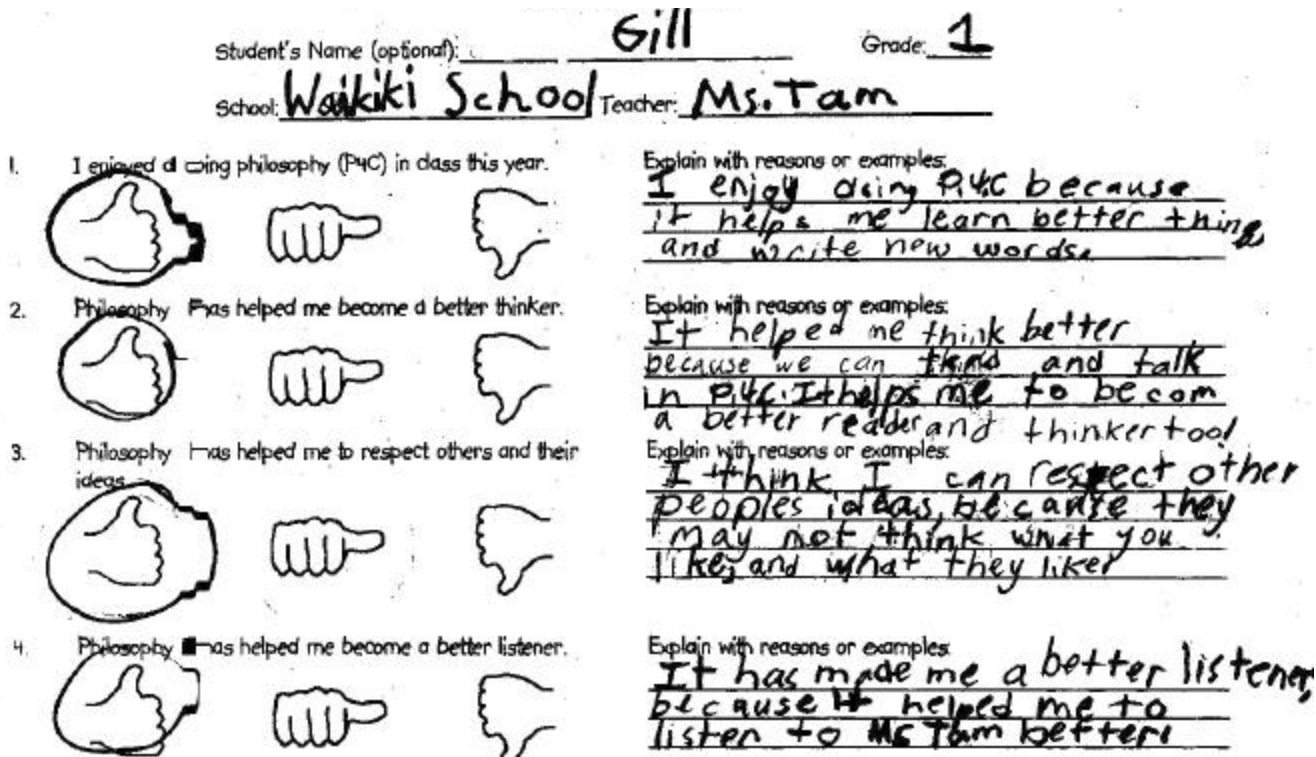 Student's Name (optional): Gill Grade: 1
School: Waikiki School Teacher: Ms. Tam
1. I enjoyed doing philosophy (P4C) in class this year.
Explain with reasons or examples:
I enjoy doing P.4.C because
it helps me learn better things
and write new words.
2. Philosophy has helped me become a better thinker.
Explain with reasons or examples:
It helped me think better
because we can and talk
in P.4.C. It helps me to becom
a better reader and thinker too!
3. Philosophy has helped me to respect others and their
ideas
Explain with reasons or examples:
I think I can respect other
peoples ideas, because they
may not think what you
like, and what they like
4. Philosophy has helped me become a better listener.
Explain with reasons or examples:
It has made me a better listener,
because it helped me to
listen to Ms Tam better